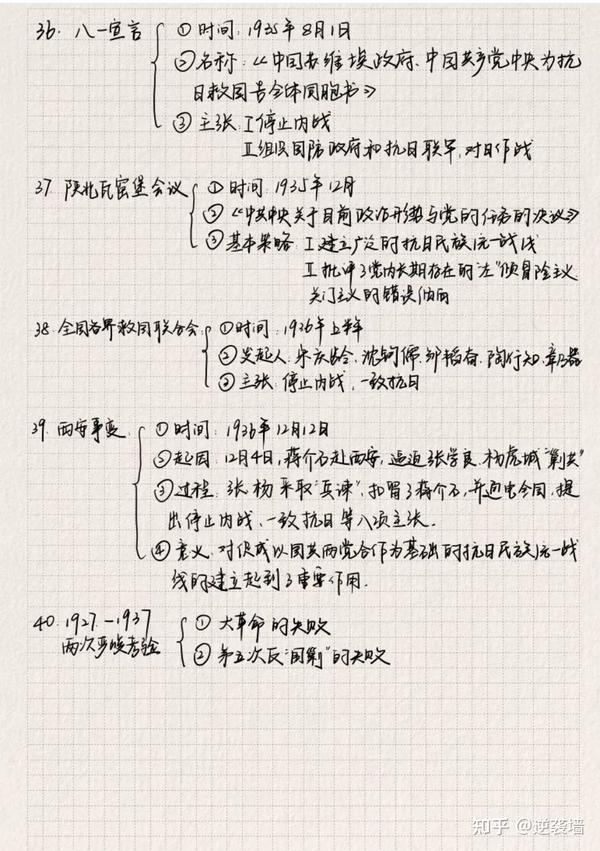 36. 八一宣言 ① 时间: 1935年8月1日
② 名称:《中国苏维埃政府、中国共产党中央为抗
日救国告全体同胞书》
③ 主张: I 停止内战
II 组织国防政府和抗日联军, 对日作战
37. 陕北瓦窑堡会议 ① 时间: 1935年12月
② 《中共中央关于目前政治形势与党的任务的决议》
③ 基本策略: I 建立广泛的抗日民族统一战线
II 批评了党内长期存在的"左"倾冒险主义、
关门主义的错误倾向
38. 全国各界救国联合会 ① 时间: 1936年上半年
② 发起人: 宋庆龄、沈钧儒、邹韬奋、陶行知、章乃器
③ 主张: 停止内战, 一致抗日
39. 西安事变 ① 时间: 1936年12月12日
② 起因: 12月4日, 蒋介石赴西安, 逼迫张学良、杨虎城"剿共"
③ 过程: 张、杨采取"兵谏", 扣留了蒋介石, 并通电全国, 提
出停止内战、一致抗日等八项主张.
④ 意义: 对促成以国共两党合作为基础的抗日民族统一战
线的建立起到了重要作用.
40. 1927.-1937 ① 大革命的失败
两次严峻考验 ② 第五次反"围剿"的失败
知乎 @逆袭墙